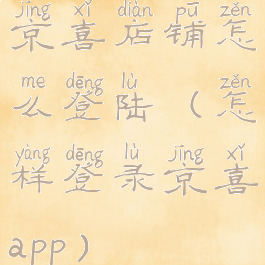 jīng xǐ diàn pū zěn
京喜店铺怎
me dēng lù zěn
么登陆（怎
yàng dēng lù jīng xǐ
样登录京喜
app）